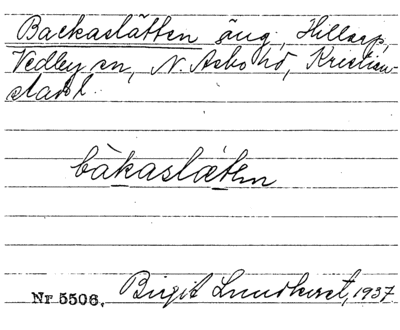 Backaslätten äng, Hillarp,
Vedby sn, N. Åsbo hd, Kristian-
stad l.
bàkaslætən
Nr 5506. Birgit Lundkvist, 1937